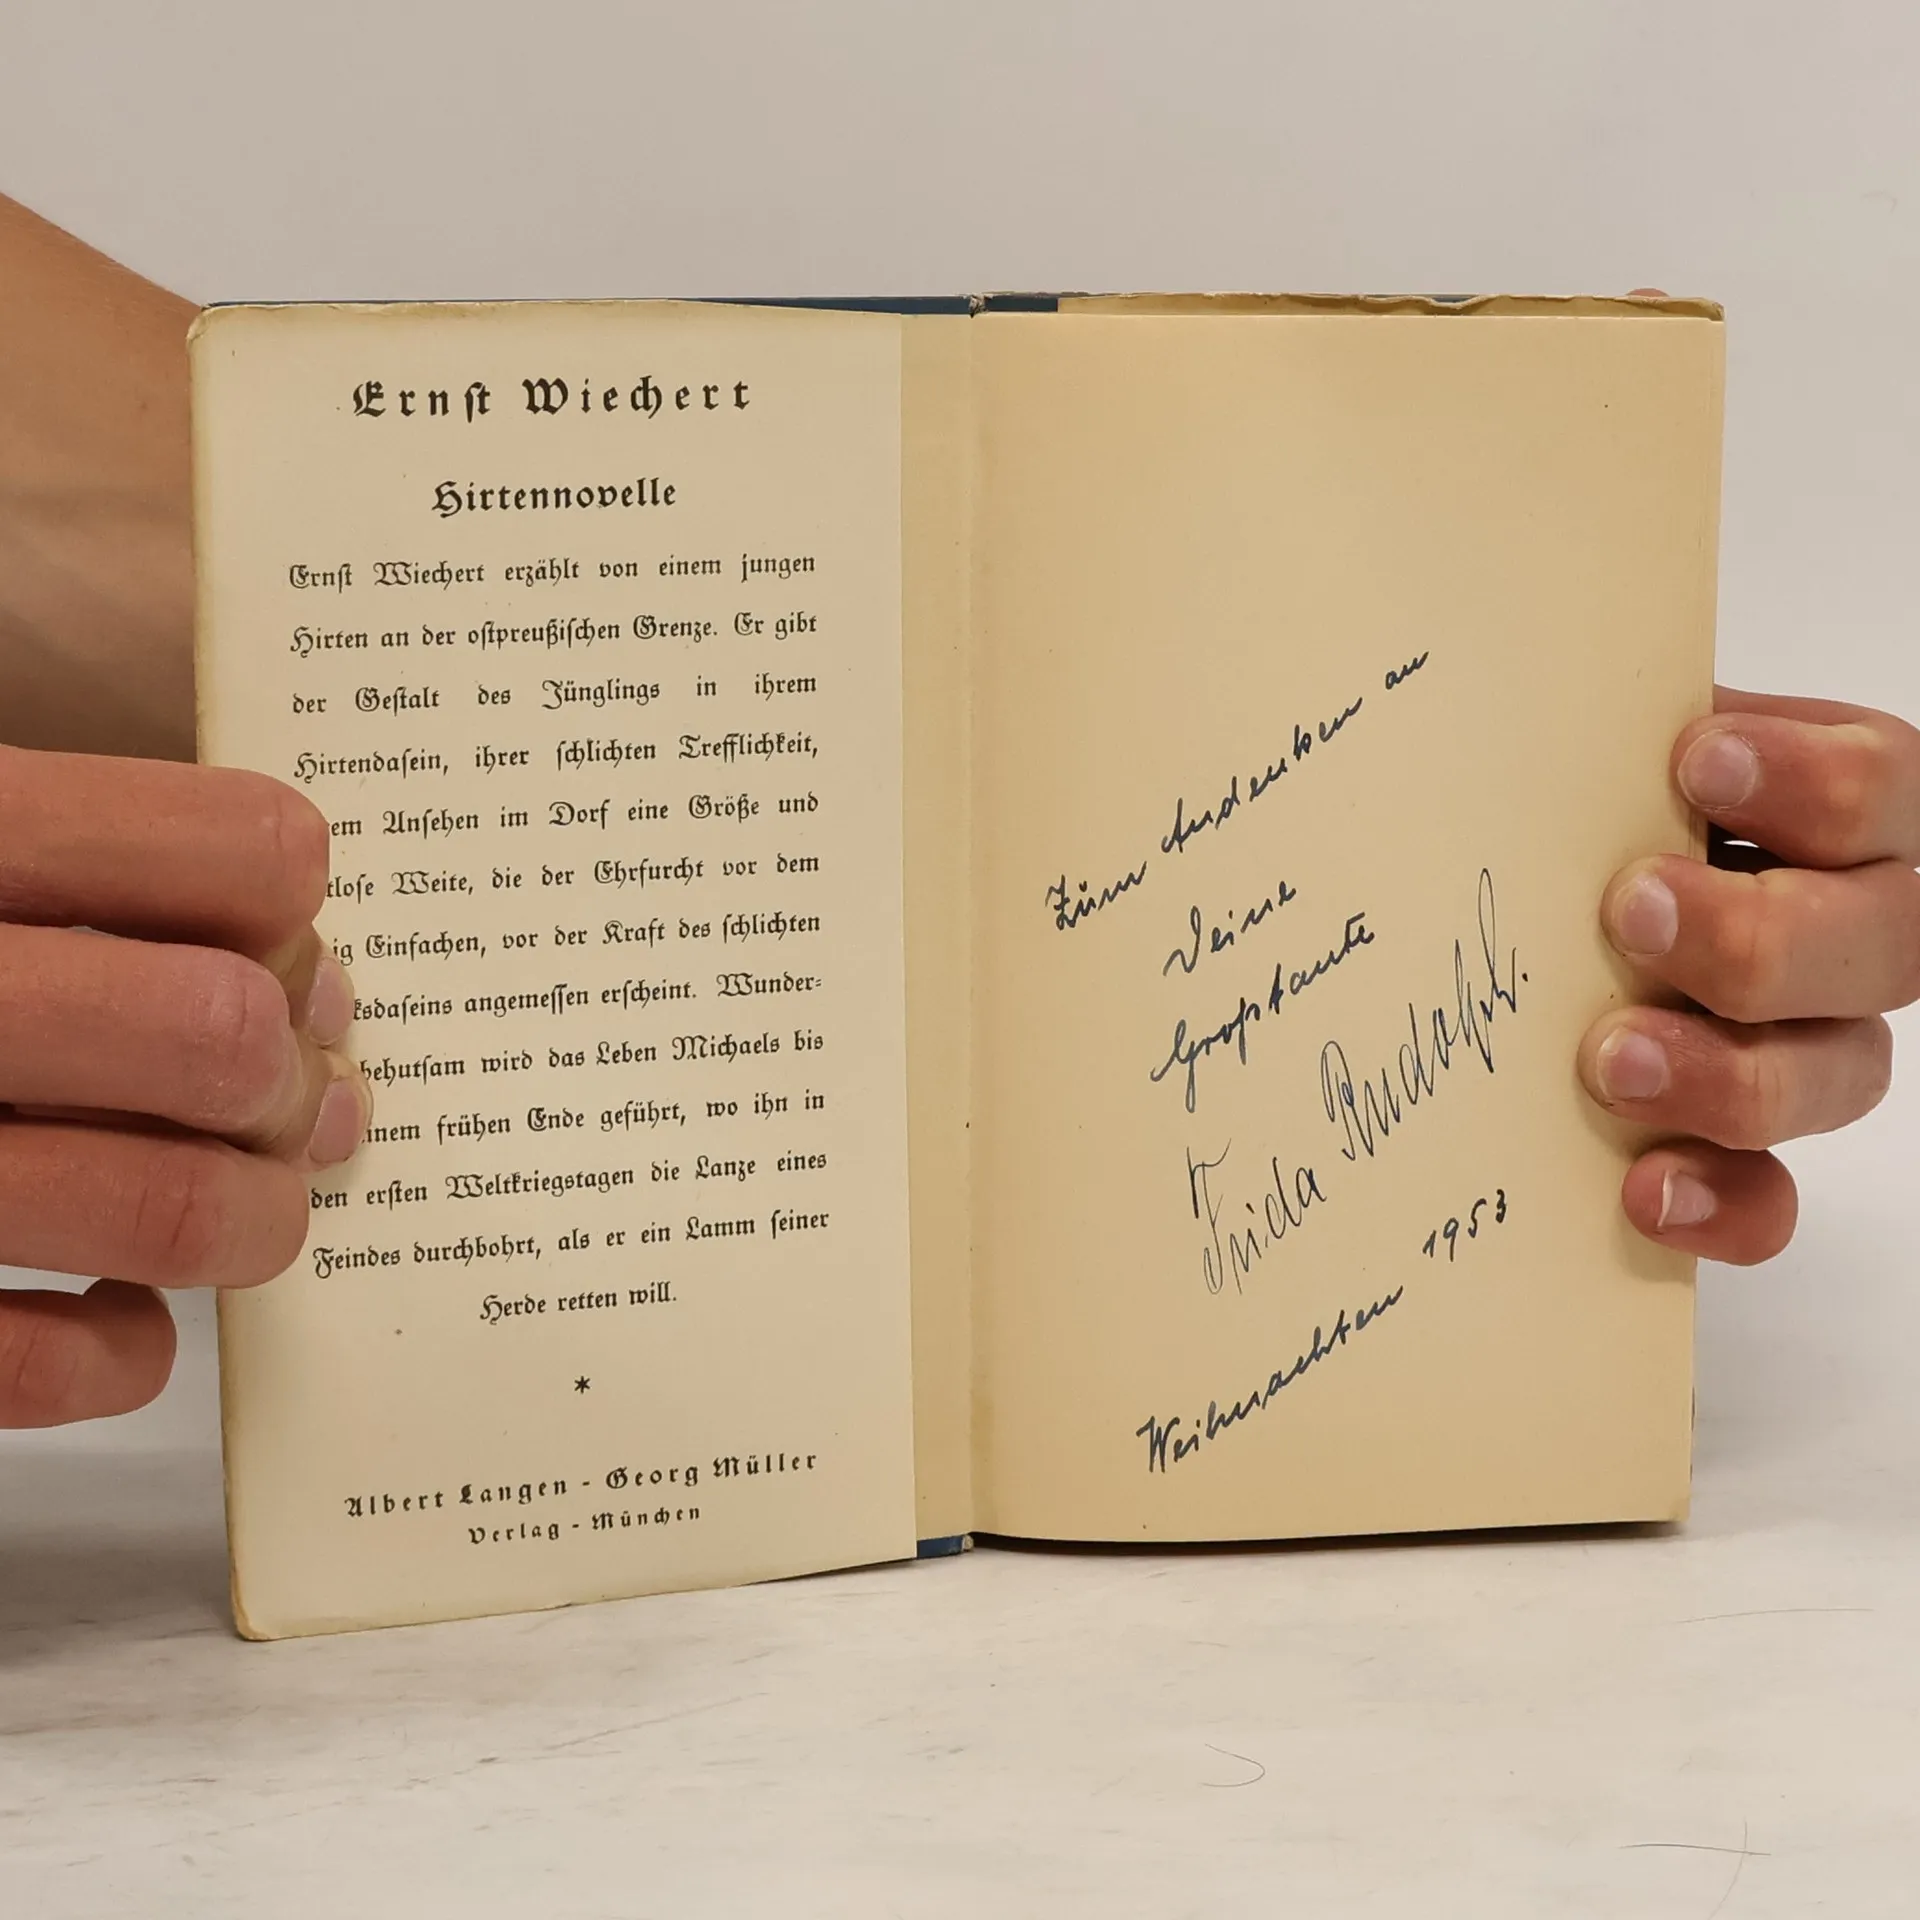 Ernst Wiechert
Hirtennovelle
Ernst Wiechert erzählt von einem jungen
Hirten an der ostpreußischen Grenze. Er gibt
der Gestalt des Jünglings in ihrem
Hirtendasein, ihrer schlichten Trefflichkeit,
em Ansehen im Dorf eine Größe und
tlose Weite, die der Ehrfurcht vor dem
ig Einfachen, vor der Kraft des schlichten
ksdaseins angemessen erscheint. Wunder-
behutsam wird das Leben Michaels bis
inem frühen Ende geführt, wo ihn in
den ersten Weltkriegstagen die Lanze eines
Feindes durchbohrt, als er ein Lamm seiner
Herde retten will.
*
Albert Langen - Georg Müller
Verlag - München
Zum Andenken an
Deine
Großtante
Frida Rudolph.
Weihnachten 1953